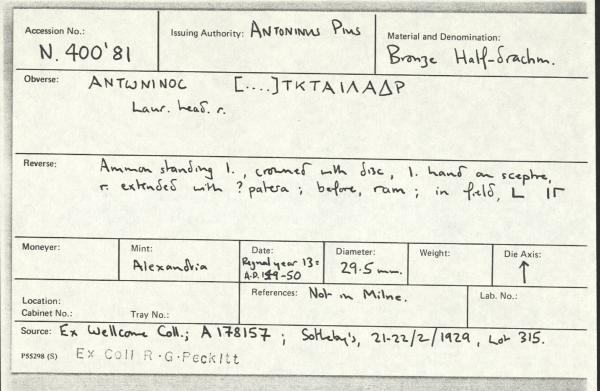 Accession No.: N. 400'81
Issuing Authority: ANTONINUS PIUS
Material and Denomination: Bronze Half-drachm.
Obverse: ΑΝΤωΝΙΝΟC [....]ΤΚΤΑΙΛΑΔΡ
Laur. head. r.
Reverse: Ammon standing l., crowned with disc, l. hand on sceptre,
r. extended with ? patera ; before, ram ; in field, L ΙΓ
Moneyer:
Mint: Alexandria
Date: Regnal year 13 =
A.D. 149-50
Diameter: 29.5 mm.
Weight:
Die Axis: ↑
Location:
Cabinet No.: Tray No.:
References: Not in Milne.
Lab. No.:
Source: Ex Wellcome Coll.; A178157 ; Sotheby's, 21-22/2/1929, Lot 315.
P55298 (S) Ex Coll R.G.Peckitt